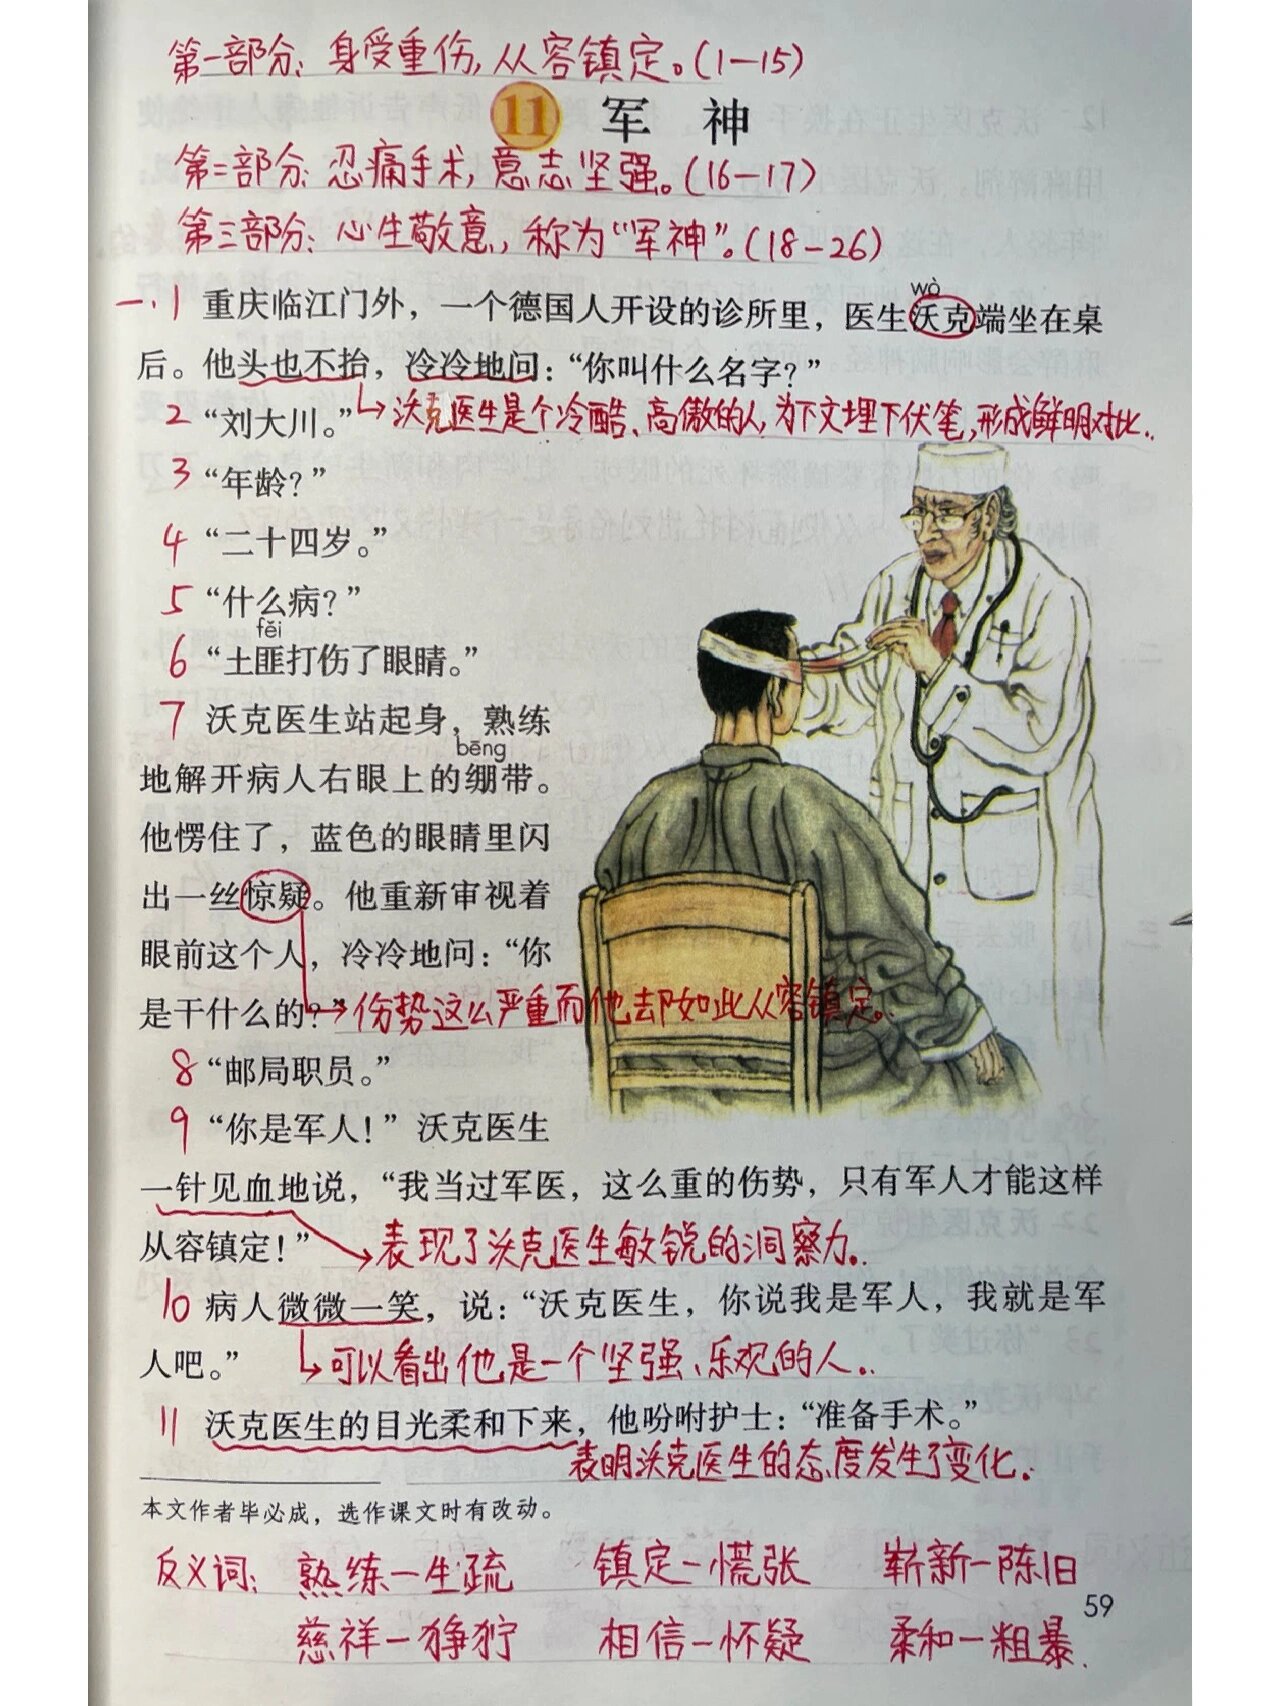 第一部分：身受重伤，从容镇定。(1—15)
11 军神
第二部分：忍痛手术，意志坚强。(16—17)
第三部分：心生敬意，称为“军神”。(18-26)
wò
一.1 重庆临江门外，一个德国人开设的诊所里，医生沃克端坐在桌
后。他头也不抬，冷冷地问：“你叫什么名字？”
2 “刘大川。”
沃克医生是个冷酷、高傲的人，为下文埋下伏笔，形成鲜明对比.
3 “年龄？”
4 “二十四岁。”
5 “什么病？”
fěi
6 “土匪打伤了眼睛。”
7 沃克医生站起身，熟练
bēng
地解开病人右眼上的绷带。
他愣住了，蓝色的眼睛里闪
出一丝惊疑。他重新审视着
眼前这个人，冷冷地问：“你
是干什么的？”
伤势这么严重而他却如此从容镇定.
8 “邮局职员。”
9 “你是军人！”沃克医生
一针见血地说，“我当过军医，这么重的伤势，只有军人才能这样
从容镇定！”
表现了沃克医生敏锐的洞察力.
10 病人微微一笑，说：“沃克医生，你说我是军人，我就是军
人吧。”
可以看出他是一个坚强、乐观的人.
11 沃克医生的目光柔和下来，他吩咐护士：“准备手术。”
表明沃克医生的态度发生了变化.
本文作者毕必成，选作课文时有改动。
反义词：熟练—生疏 镇定—慌张 崭新—陈旧
59
慈祥—狰狞 相信—怀疑 柔和—粗暴.